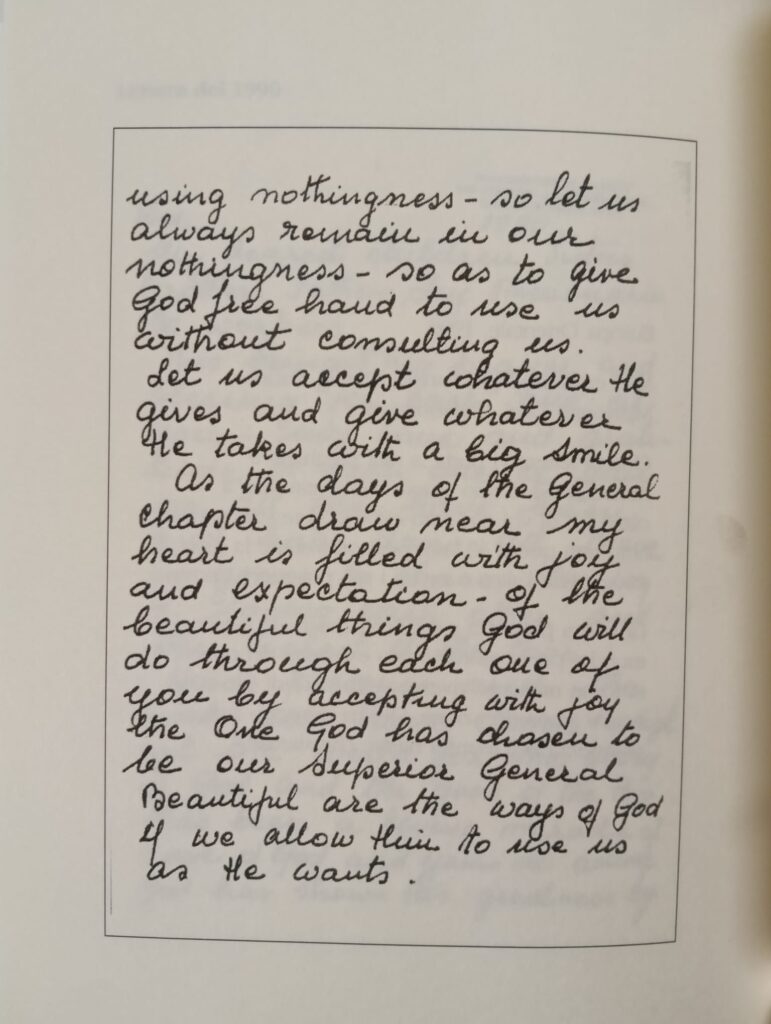 using nothingness - so let us
always remain in our
nothingness - so as to give
God free hand to use us
without consulting us.
Let us accept whatever He
gives and give whatever
He takes with a big smile.
As the days of the General
chapter draw near my
heart is filled with joy
and expectation - of the
beautiful things God will
do through each one of
you by accepting with joy
the One God has chosen to
be our Superior General
Beautiful are the ways of God
if we allow Him to use us
as He wants.